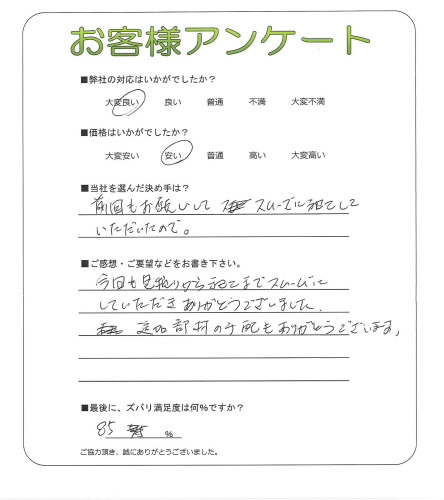 お客様アンケート
■弊社の対応はいかがでしたか?
大変良い 良い 普通 不満 大変不満
■価格はいかがでしたか?
大変安い 安い 普通 高い 大変高い
■当社を選んだ決め手は?
前回もお願いして スムーズに して
いただいたので。
■ご感想・ご要望などをお書き下さい。
今回も見積りから までスムーズに
していただきありがとうございました.
追加部材の手配もありがとうございます,
■最後に、ズバリ満足度は何%ですか?
85 %
ご協力頂き、誠にありがとうございました。